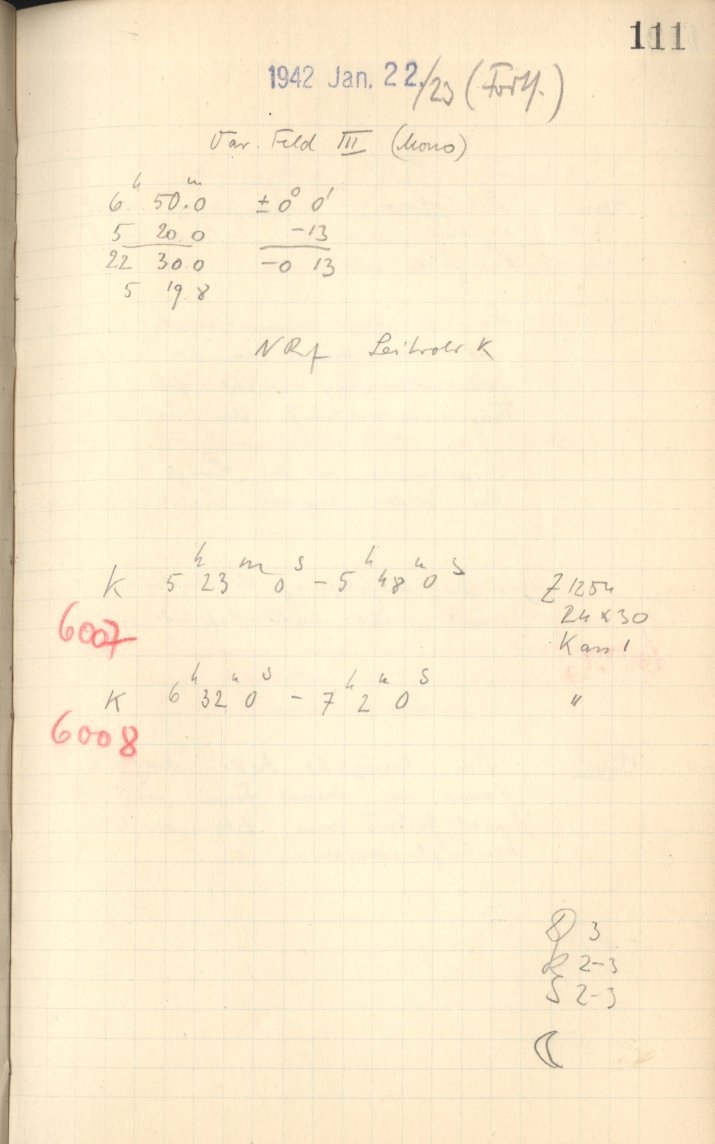 111
1942 Jan. 22./23 (Fortf.)
Var. Feld III (Mono)
6h 50m.0 ±0° 0'
5 20 0 -13
22 30 0 -0 13
5 19 8
NRf Leitrohr K
K 5h 23m 0s - 5h 48m 0s Z 1254
6007 24 x 30
Kass 1
K 6h 32m 0s - 7h 2m 0s "
6008
3
R 2-3
S 2-3